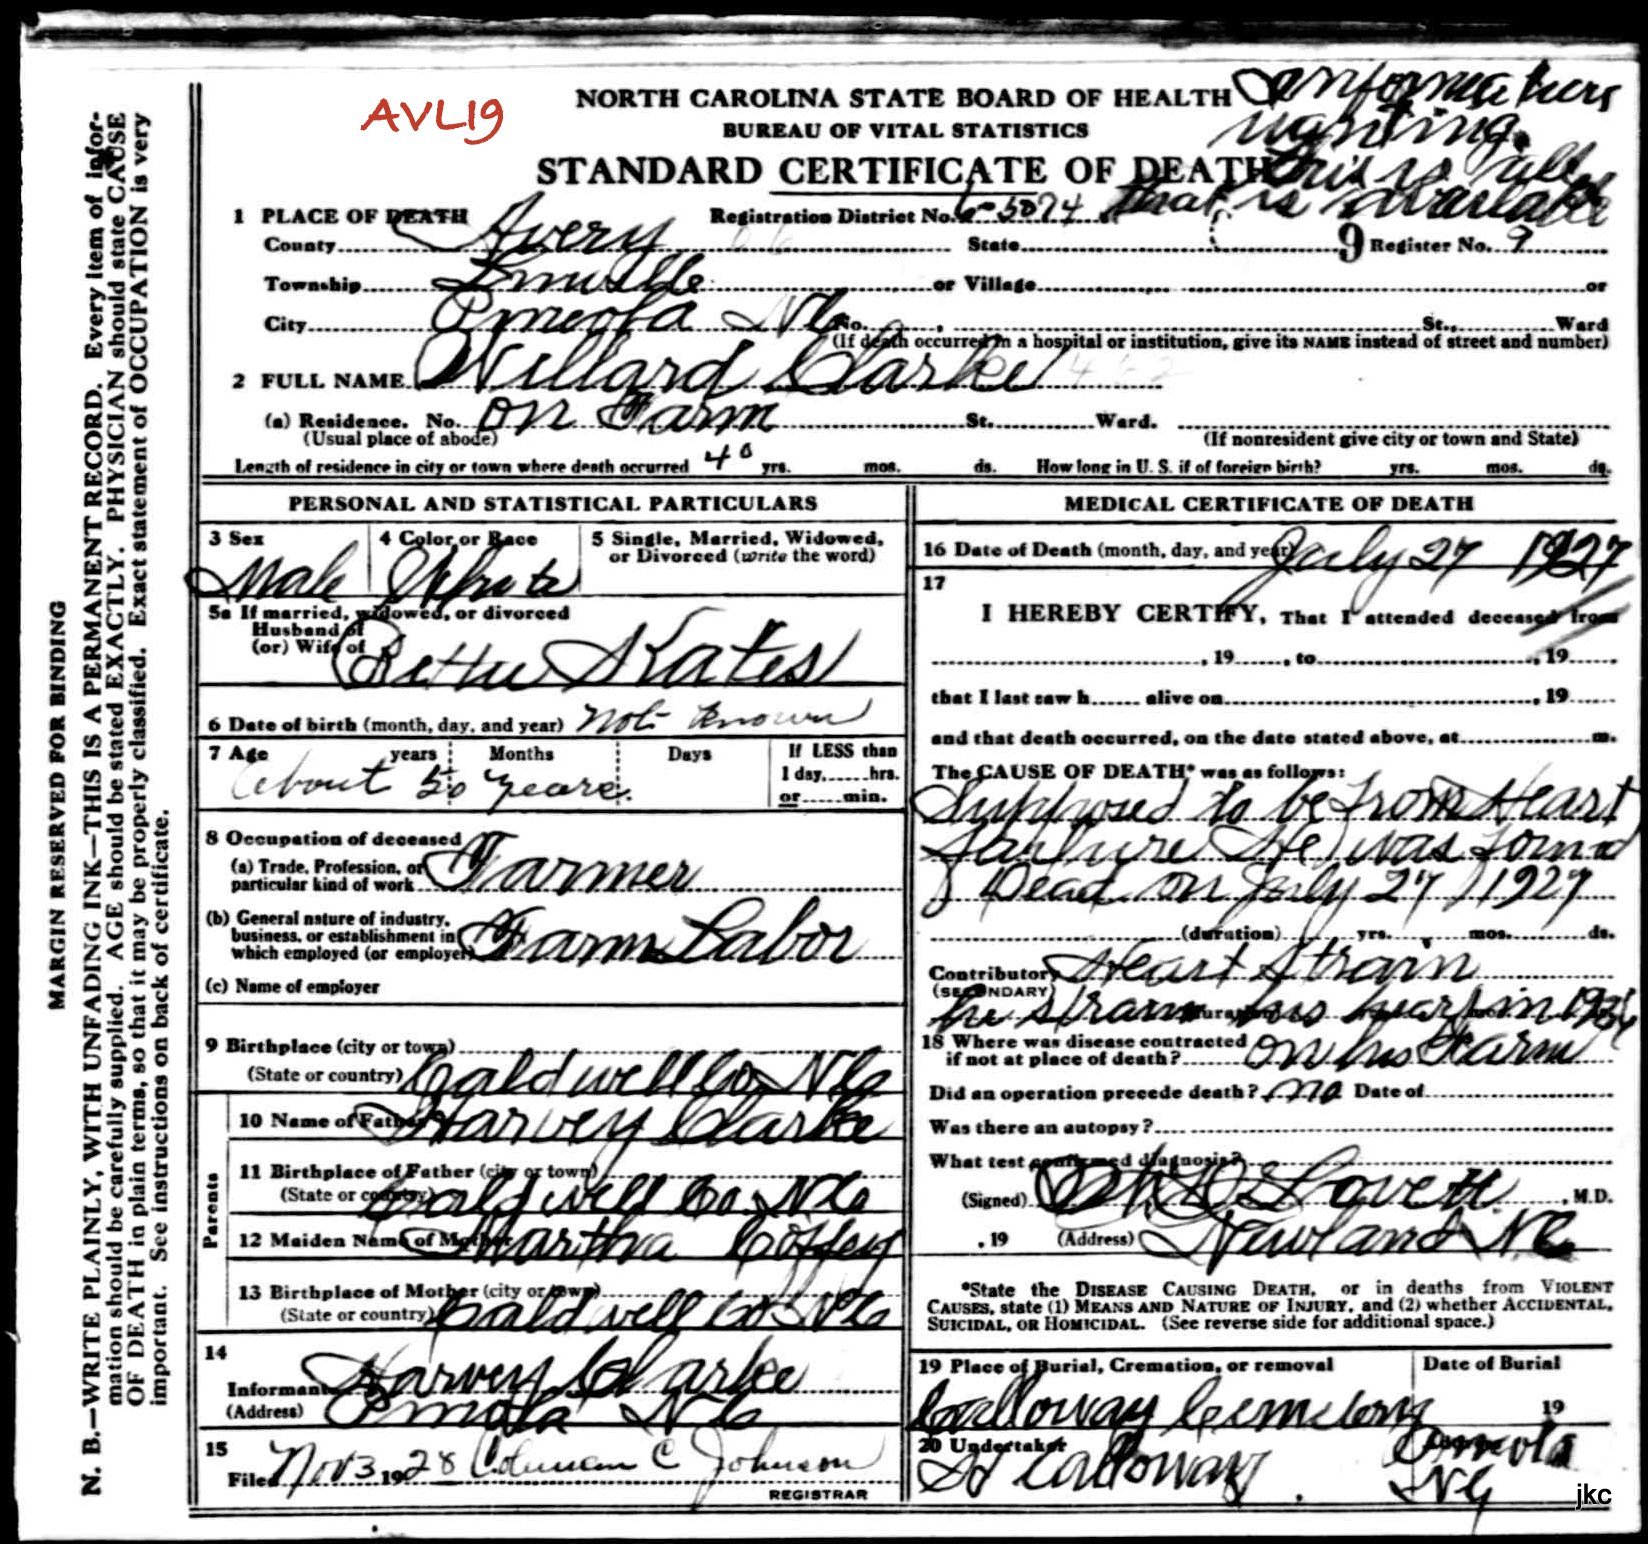 AVL19
NORTH CAROLINA STATE BOARD OF HEALTH
BUREAU OF VITAL STATISTICS
STANDARD CERTIFICATE OF DEATH
wanting.
This is all
that is available
1 PLACE OF DEATH Registration District No. 5074
County Avery State 9 Register No. 9
Township Linville or Village or
City Pineola NC No. St., Ward
(If death occurred in a hospital or institution, give its NAME instead of street and number)
2 FULL NAME Willard Clarke 462
(a) Residence. No. On Farm St. Ward.
(Usual place of abode) (If nonresident give city or town and State)
Length of residence in city or town where death occurred 40 yrs. mos. ds. How long in U. S. if of foreign birth? yrs. mos. ds.
PERSONAL AND STATISTICAL PARTICULARS
3 Sex 4 Color or Race 5 Single, Married, Widowed,
or Divorced (write the word)
Male White
5a If married, widowed, or divorced
Husband of
(or) Wife of Bettie Skates
6 Date of birth (month, day, and year) not known
7 Age years Months Days If LESS than
1 day, hrs.
or min.
about 50 years.
8 Occupation of deceased
(a) Trade, Profession, or
particular kind of work Farmer
(b) General nature of industry,
business, or establishment in
which employed (or employer) Farm Labor
(c) Name of employer
9 Birthplace (city or town)
(State or country) Caldwell Co NC
Parents
10 Name of Father Harvey Clarke
11 Birthplace of Father (city or town)
(State or country) Caldwell Co. NC
12 Maiden Name of Mother Martha Coffey
13 Birthplace of Mother (city or town)
(State or country) Caldwell Co NC
14
Informant Harvey Clarke
(Address) Pineola NC
15
Filed Nov 3 1928 Coleman C Johnson
REGISTRAR
MEDICAL CERTIFICATE OF DEATH
16 Date of Death (month, day, and year) July 27 1927
17
I HEREBY CERTIFY, That I attended deceased from
, 19 , to , 19
that I last saw h alive on , 19
and that death occurred, on the date stated above, at m.
The CAUSE OF DEATH* was as follows:
Supposed to be from Heart
Failure He was Found
Dead on July 27 1927
(duration) yrs. mos. ds.
Contributory Heart Strain
(SECONDARY)
he strain his heart in
18 Where was disease contracted
if not at place of death? On his Farm
Did an operation precede death? no Date of
Was there an autopsy?
What test confirmed diagnosis?
(Signed) Lovett , M.D.
, 19 (Address) Newland NC
*State the DISEASE CAUSING DEATH, or in deaths from VIOLENT
CAUSES, state (1) MEANS AND NATURE OF INJURY, and (2) whether ACCIDENTAL,
SUICIDAL, OR HOMICIDAL. (See reverse side for additional space.)
19 Place of Burial, Cremation, or removal Date of Burial
Calloway Cemetery 19
20 Undertaker
Calloway Pineola
NC
jkc
MARGIN RESERVED FOR BINDING
N. B.—WRITE PLAINLY, WITH UNFADING INK—THIS IS A PERMANENT RECORD. Every item of infor-
mation should be carefully supplied. AGE should be stated EXACTLY. PHYSICIAN should state CAUSE
OF DEATH in plain terms, so that it may be properly classified. Exact statement of OCCUPATION is very
important. See instructions on back of certificate.